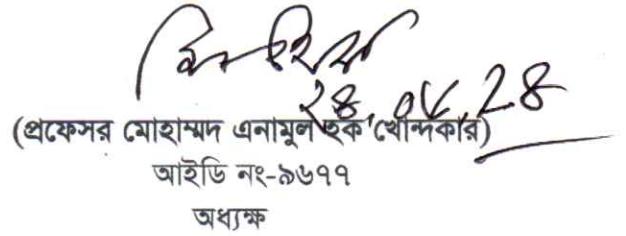 ২৪.০৮.২৪
(প্রফেসর মোহাম্মদ এনামুল হক খোন্দকার)
আইডি নং-৯৬৭৭
অধ্যক্ষ